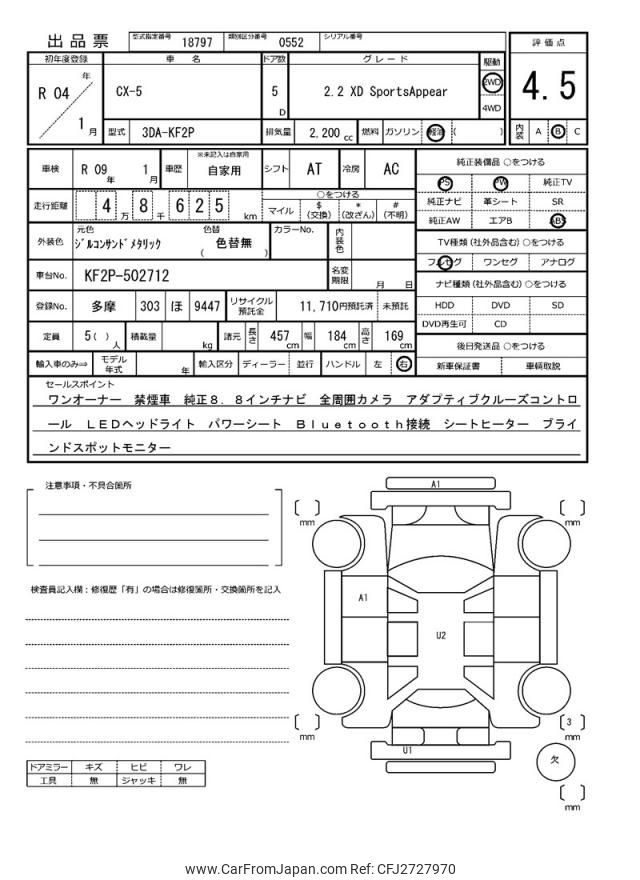 出品票 型式指定番号 18797 類別区分番号 0552 シリアル番号
初年度登録 車 名 ドア数 グレード 駆動 評価点
R 04 年 1 月 CX-5 5 D 2.2 XD SportsAppear 2WD 4WD 4.5
型式 3DA-KF2P 排気量 2,200 cc 燃料 ガソリン 軽油 ( ) 内装 A B C
車検 R 09 年 1 月 車歴 ※未記入は自家用 自家用 シフト AT 冷房 AC
走行距離 4 万 8 千 6 2 5 km ○をつける マイル $ (交換) * (改ざん) # (不明)
外装色 元色 ｼﾞﾙｺﾝｻﾝﾄﾞﾒﾀﾘｯｸ 色替 ( 色替無 ) カラーNo. 内装色
車台No. KF2P-502712 名変期限 月 日
登録No. 多摩 303 ほ 9447 リサイクル預託金 11,710円預託済 未預託
定員 5 ( ) 人 積載量 kg 諸元 長さ 457 cm 幅 184 cm 高さ 169 cm
輸入車のみ⇒ モデル年式 年 輸入区分 ディーラー 並行 ハンドル 左 右
純正装備品 ○をつける
PS PW 純正TV
純正ナビ 革シート SR
純正AW エアB ABS
TV種類 (社外品含む) ○をつける
フルセグ ワンセグ アナログ
ナビ種類 (社外品含む) ○をつける
HDD DVD SD
DVD再生可 CD
後日発送品 ○をつける
新車保証書 車輌取説
セールスポイント
ワンオーナー 禁煙車 純正８．８インチナビ 全周囲カメラ アダプティブクルーズコントロ
ール ＬＥＤヘッドライト パワーシート Ｂｌｕｅｔｏｏｔｈ接続 シートヒーター ブライ
ンドスポットモニター
注意事項・不具合箇所
検査員記入欄：修復歴「有」の場合は修復箇所・交換箇所を記入
ドアミラー キズ ヒビ ワレ
工具 無 ジャッキ 無
A1
[ ] mm
[ ] mm
A1
U2
[ ] mm
[ 3 ] mm
U1
欠
[ ] mm
www.CarFromJapan.com Ref: CFJ2727970